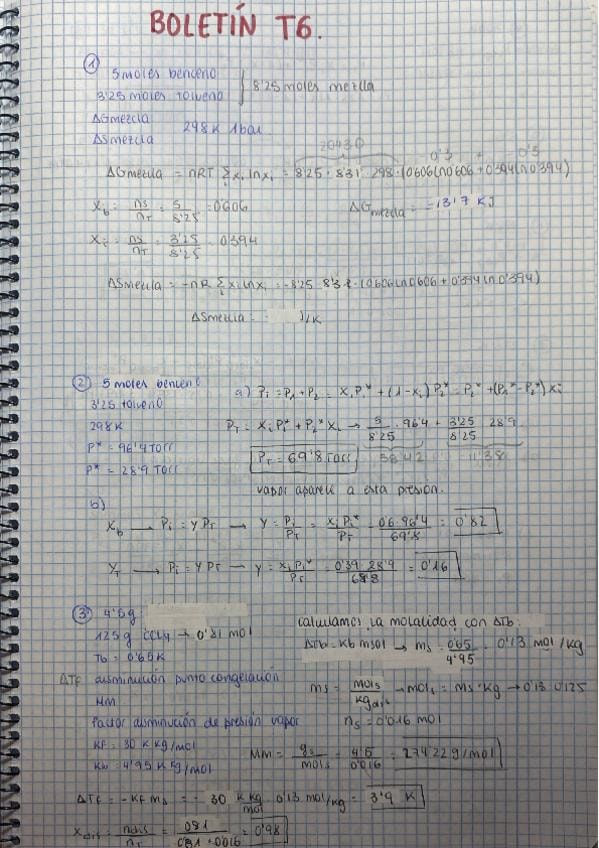 BOLETÍN T6.
① 5 moles benceno
3'25 moles tolueno
} 8'25 moles mezcla
ΔGmezcla
ΔSmezcla
298K 1 bar
20430 -0'3 + 0'3
ΔGmezcla = nRT Σ xi ln xi = 8'25 · 8'31 · 298 · (0'606 ln 0'606 + 0'394 ln 0'394)
Xb = ns/nT = 5/8'25 = 0'606
ΔGmezcla = -13'7 KJ
Xt = ns/nT = 3'25/8'25 = 0'394
ΔSmezcla = -nR Σ xi ln xi = -8'25 · 8'31 · (0'606 ln 0'606 + 0'394 ln 0'394)
ΔSmezcla = J/K
② 5 moles benceno
a) Pi = P1 + P2 = X1 P1* + (1 - x1) P2* = P2* + (P1* - P2*) Xi
3'25 tolueno
298K
PT = Xi Pi* + P2* Xi → 5/8'25 · 96'4 + 3'25/8'25 · 28'9
P* = 96'4 Torr
P* = 28'9 Torr
PT = 69'8 Torr 58'42 11'38
vapor aparece a esta presión.
b)
Xb → Pi = Y PT → Y = Pi/PT = Xi Pi*/PT = 0'6·96'4/69'8 = 0'82
YT → Pi = Y PT → Y = Xi Pi*/PT = 0'39·28'9/69'8 = 0'16
③ 4'5g
125g CCl4 → 0'81 mol
Tb = 0'65K
ΔTf disminución punto congelación
MM
Factor disminución de presión vapor
KF = 30 K kg/mol
Kb = 4'95 K kg/mol
Calculamos la molalidad con ΔTb:
ΔTb = Kb · msol → ms = 0'65/4'95 = 0'13 mol/kg
ms = mols/kgdis → mols = ms · kg → 0'13 · 0'125
ns = 0'016 mol
MM = gs/mols = 4'5/0'016 = 274'22 g/mol
ΔTf = -KF ms = - 30 K kg/mol · 0'13 mol/kg = 3'9 K
Xdis = ndis/nT = 0'81/0'81 + 0'016 = 0'98